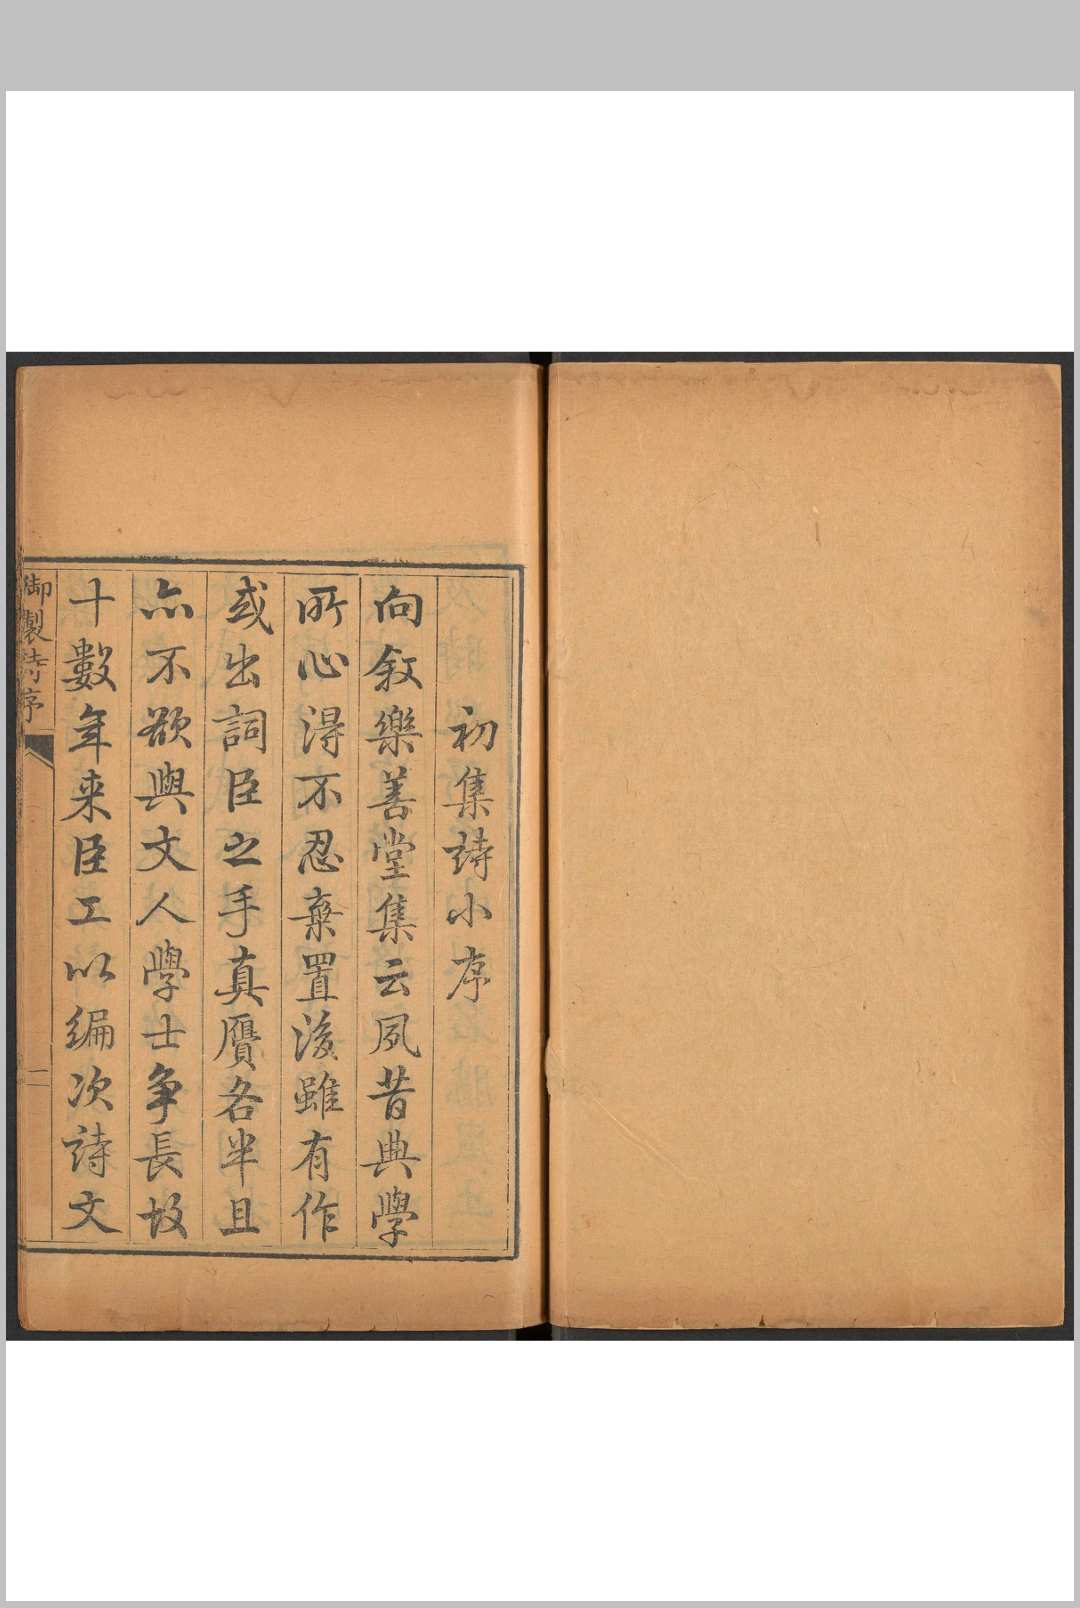 初集詩小序
向敘樂善堂集云夙昔典學
所心得不忍棄置後雖有作
或出詞臣之手真贋各半且
亦不欲與文人學士爭長故
十數年来臣工以編次詩文
御製詩序
一